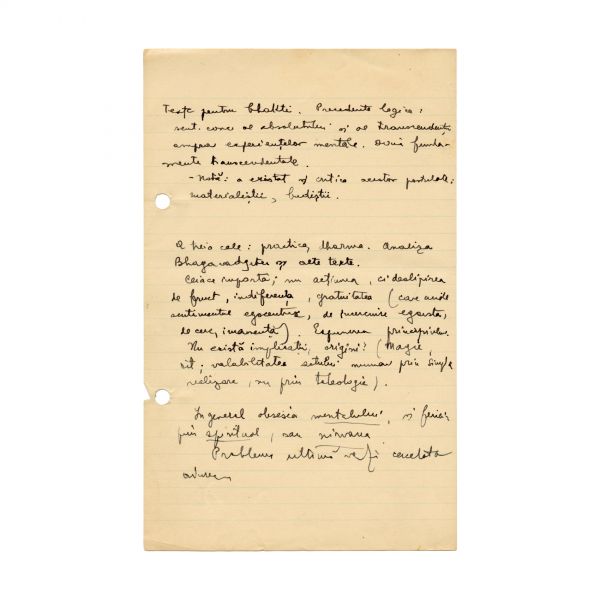 Texte pentru bhakti. Precedente logice:
sent. conc al absolutului și al transcendenței
asupra experiențelor mentale. două funda-
mente transcendentale.
- Notă: a existat și critica acestor postulate:
materialiștii, budiștii.
A treia cale: practica, dharma. Analiza
Bhagavadgitei și alte texte.
Ceiace importă; nu acțiunea, ci deslipirea
de fruct, indiferența, gratuitatea (care
sentimentul egocentric, de egoistă,
de cerc, imanență). Expunerea principiului.
Nu există implicații, origini? (Magie,
rit; valabilitatea actului numai prin simpla
realizare, nu prin teleologie).
In general obsesia mentalului, și
prin spiritual, sau nirvana
Problema ultimă va fi cercetată